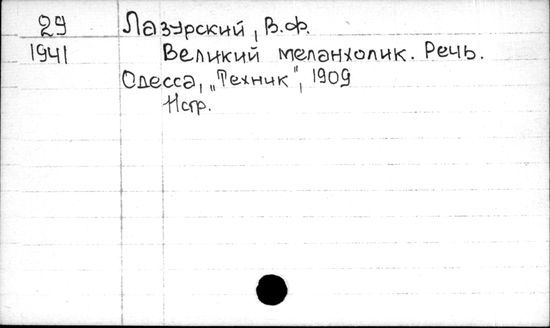 29 Лазурский, В.Ф.
1941 Великий меланхолик. Речь.
Одесса, „Техник", 1909
11стр.